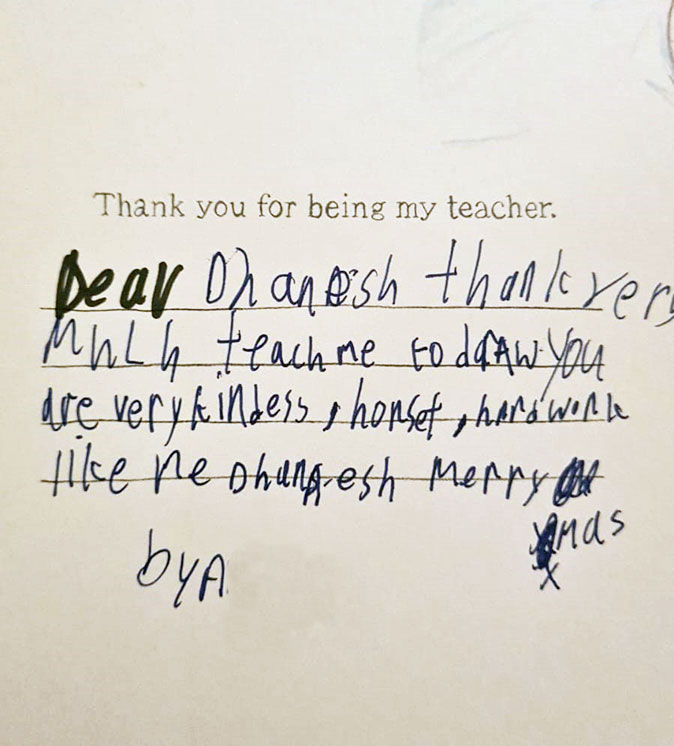 Thank you for being my teacher.
Dear Dhanesh thank very
Much teach me to draw you
are very kindess, honset, hardwork
like me Dhanesh Merry
xmas
by A